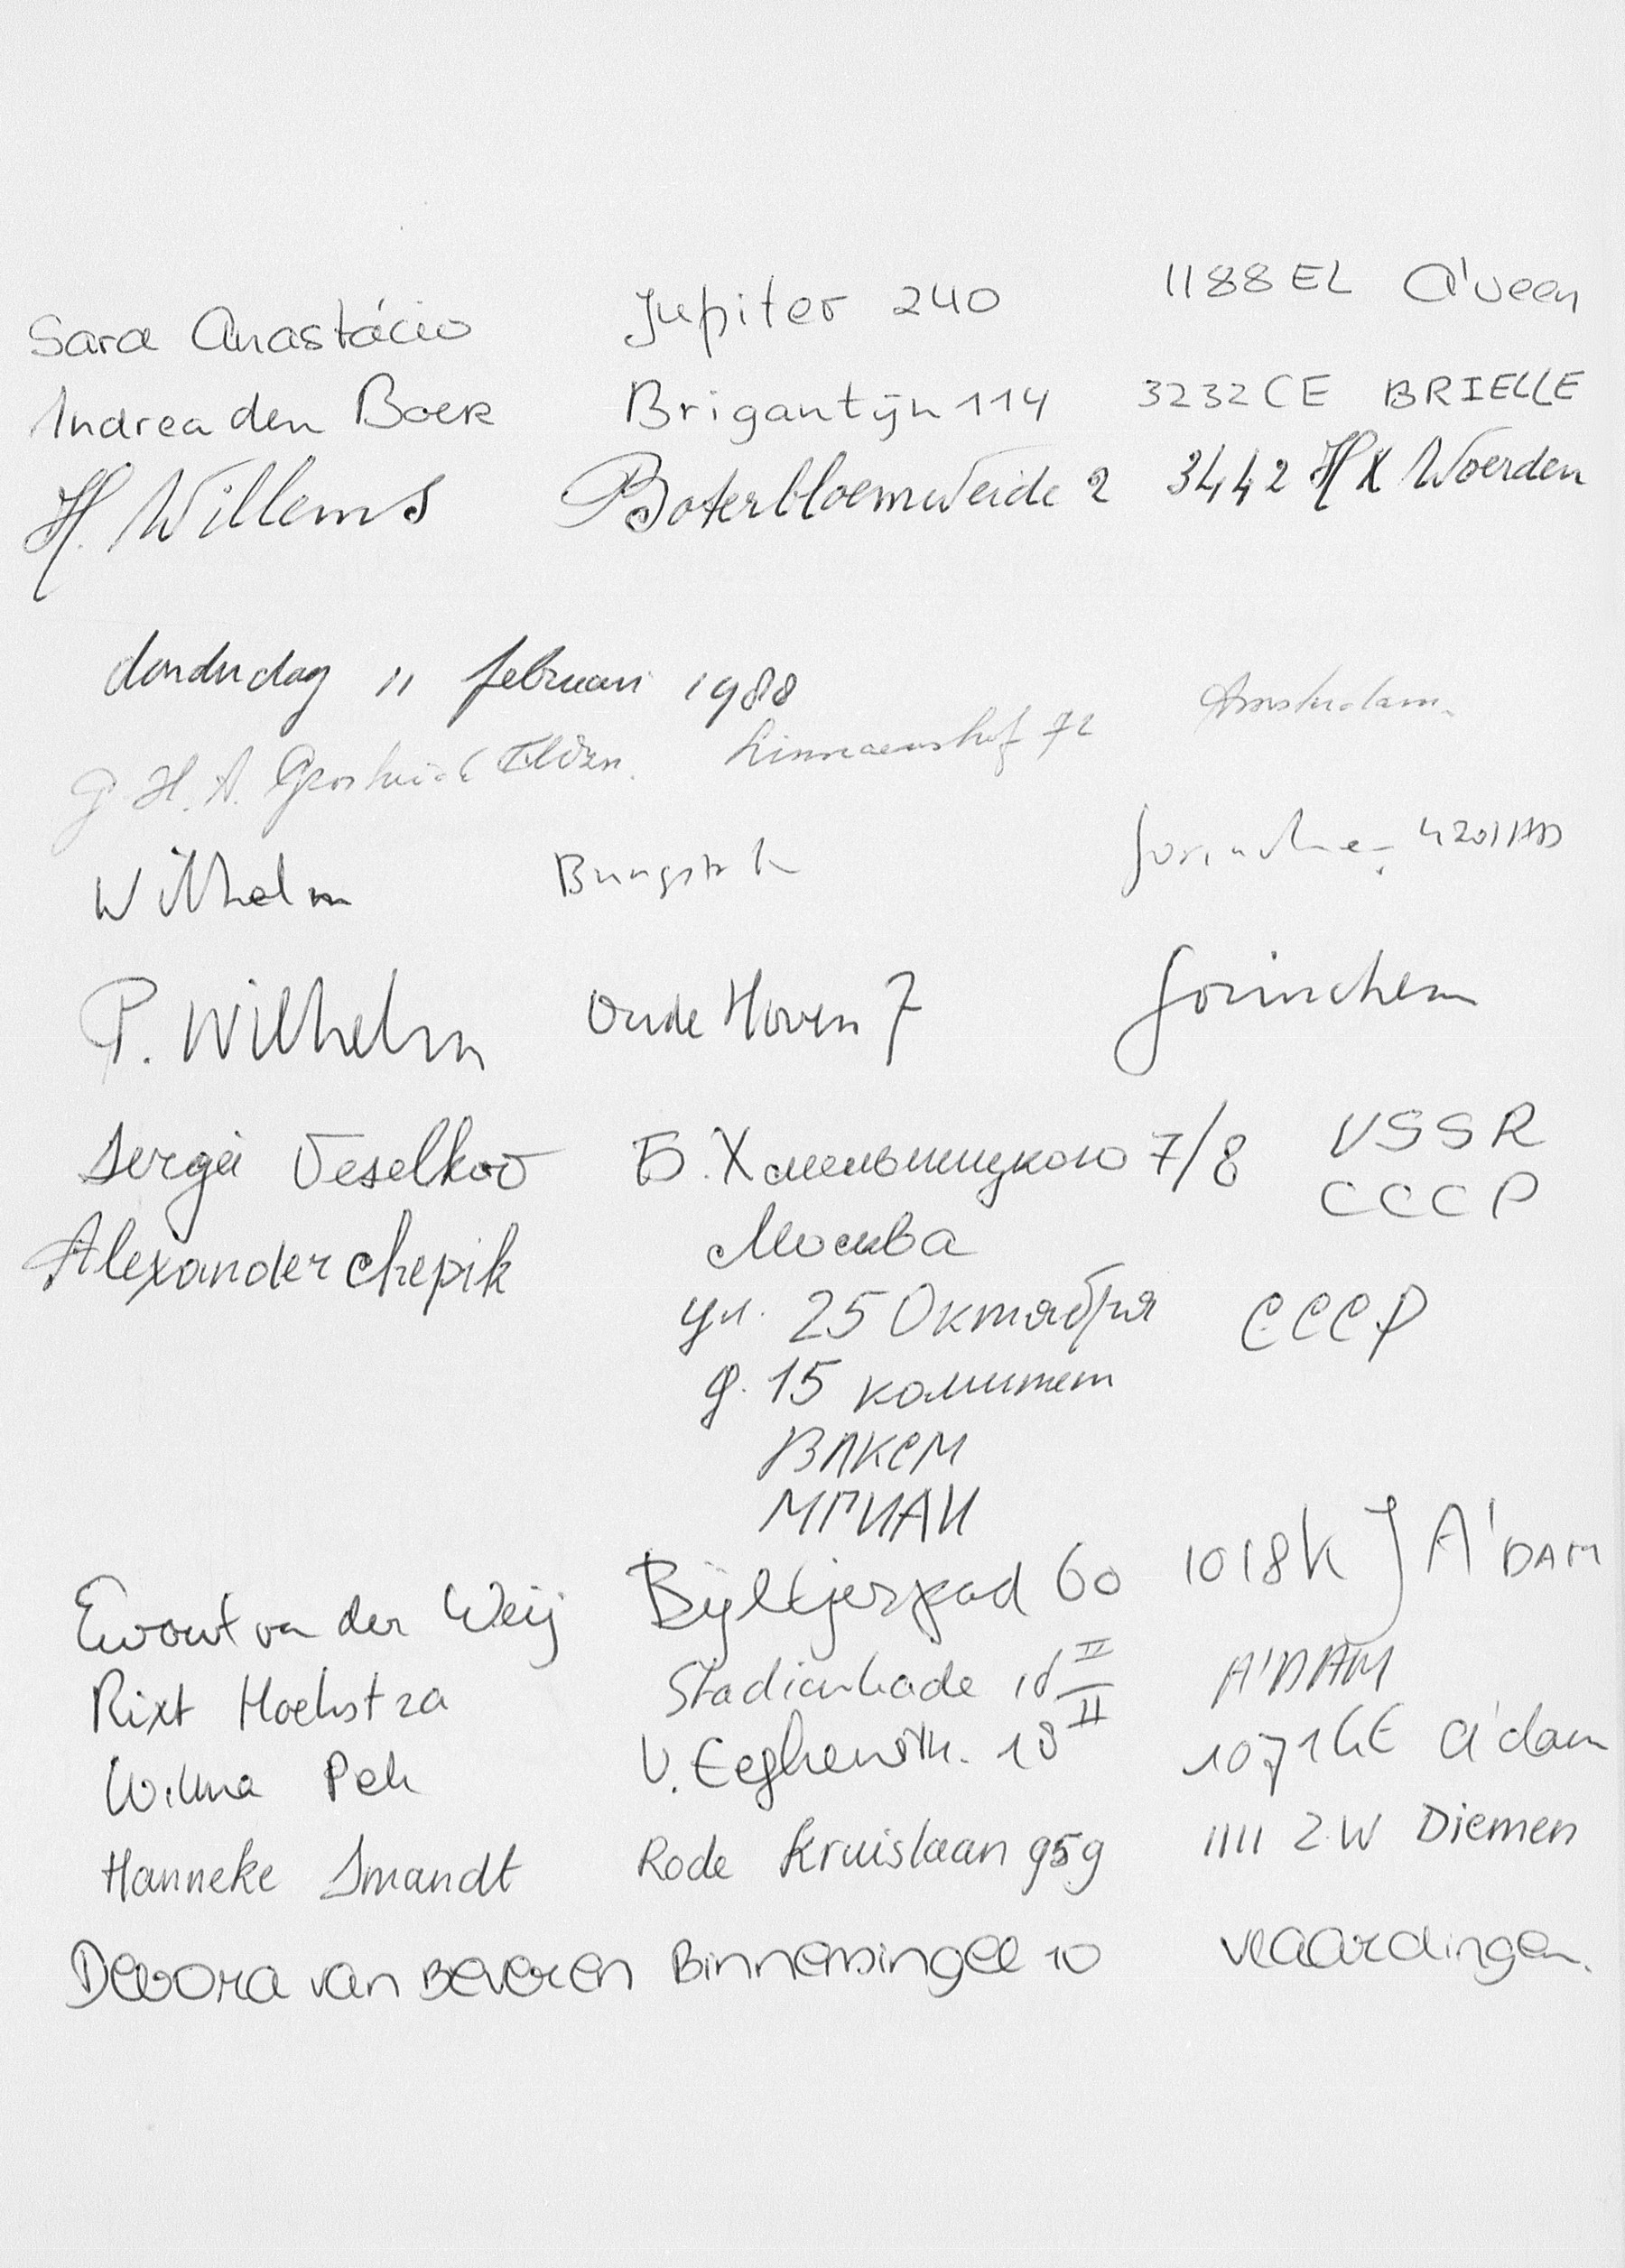 Sara Anastácio Jupiter 240 1188EL A'veen
Andrea den Boer Brigantijn 114 3232CE BRIELLE
H. Willems Boterbloemweide 2 3442 HX Woerden
donderdag 11 februari 1988
G. H. A. Linnaeushof 72 Amsterdam
Wilhelm Gorinchem 4201
P. Wilhelm Oude Hoven 7 Gorinchem
Sergei Veselkov Б. Хмельницкого 7/8 USSR
СССР
Alexander Chepik Москва
ул. 25 Октября СССР
д. 15 комитет
ВЛКСМ
МГИАИ
Ewout van der Weij Bijltjespad 60 1018KJ A'DAM
Rixt Hoekstra Stadionkade A'DAM
Wilma Pek V. Eeghenstr. 18 II 1071GE A'dam
Hanneke Smandt Rode Kruislaan 959 1111 ZW Diemen
Devora van Beveren Binnensingel 10 vlaardingen.